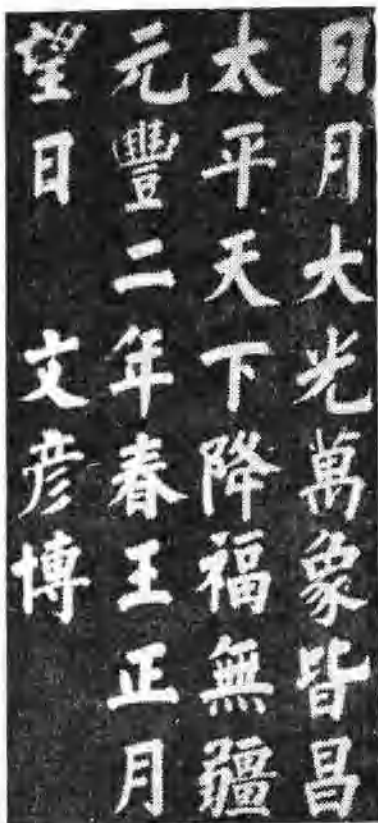 日月大光萬象皆昌
太平天下降福無疆
元豐二年春王正月
望日 文彥博